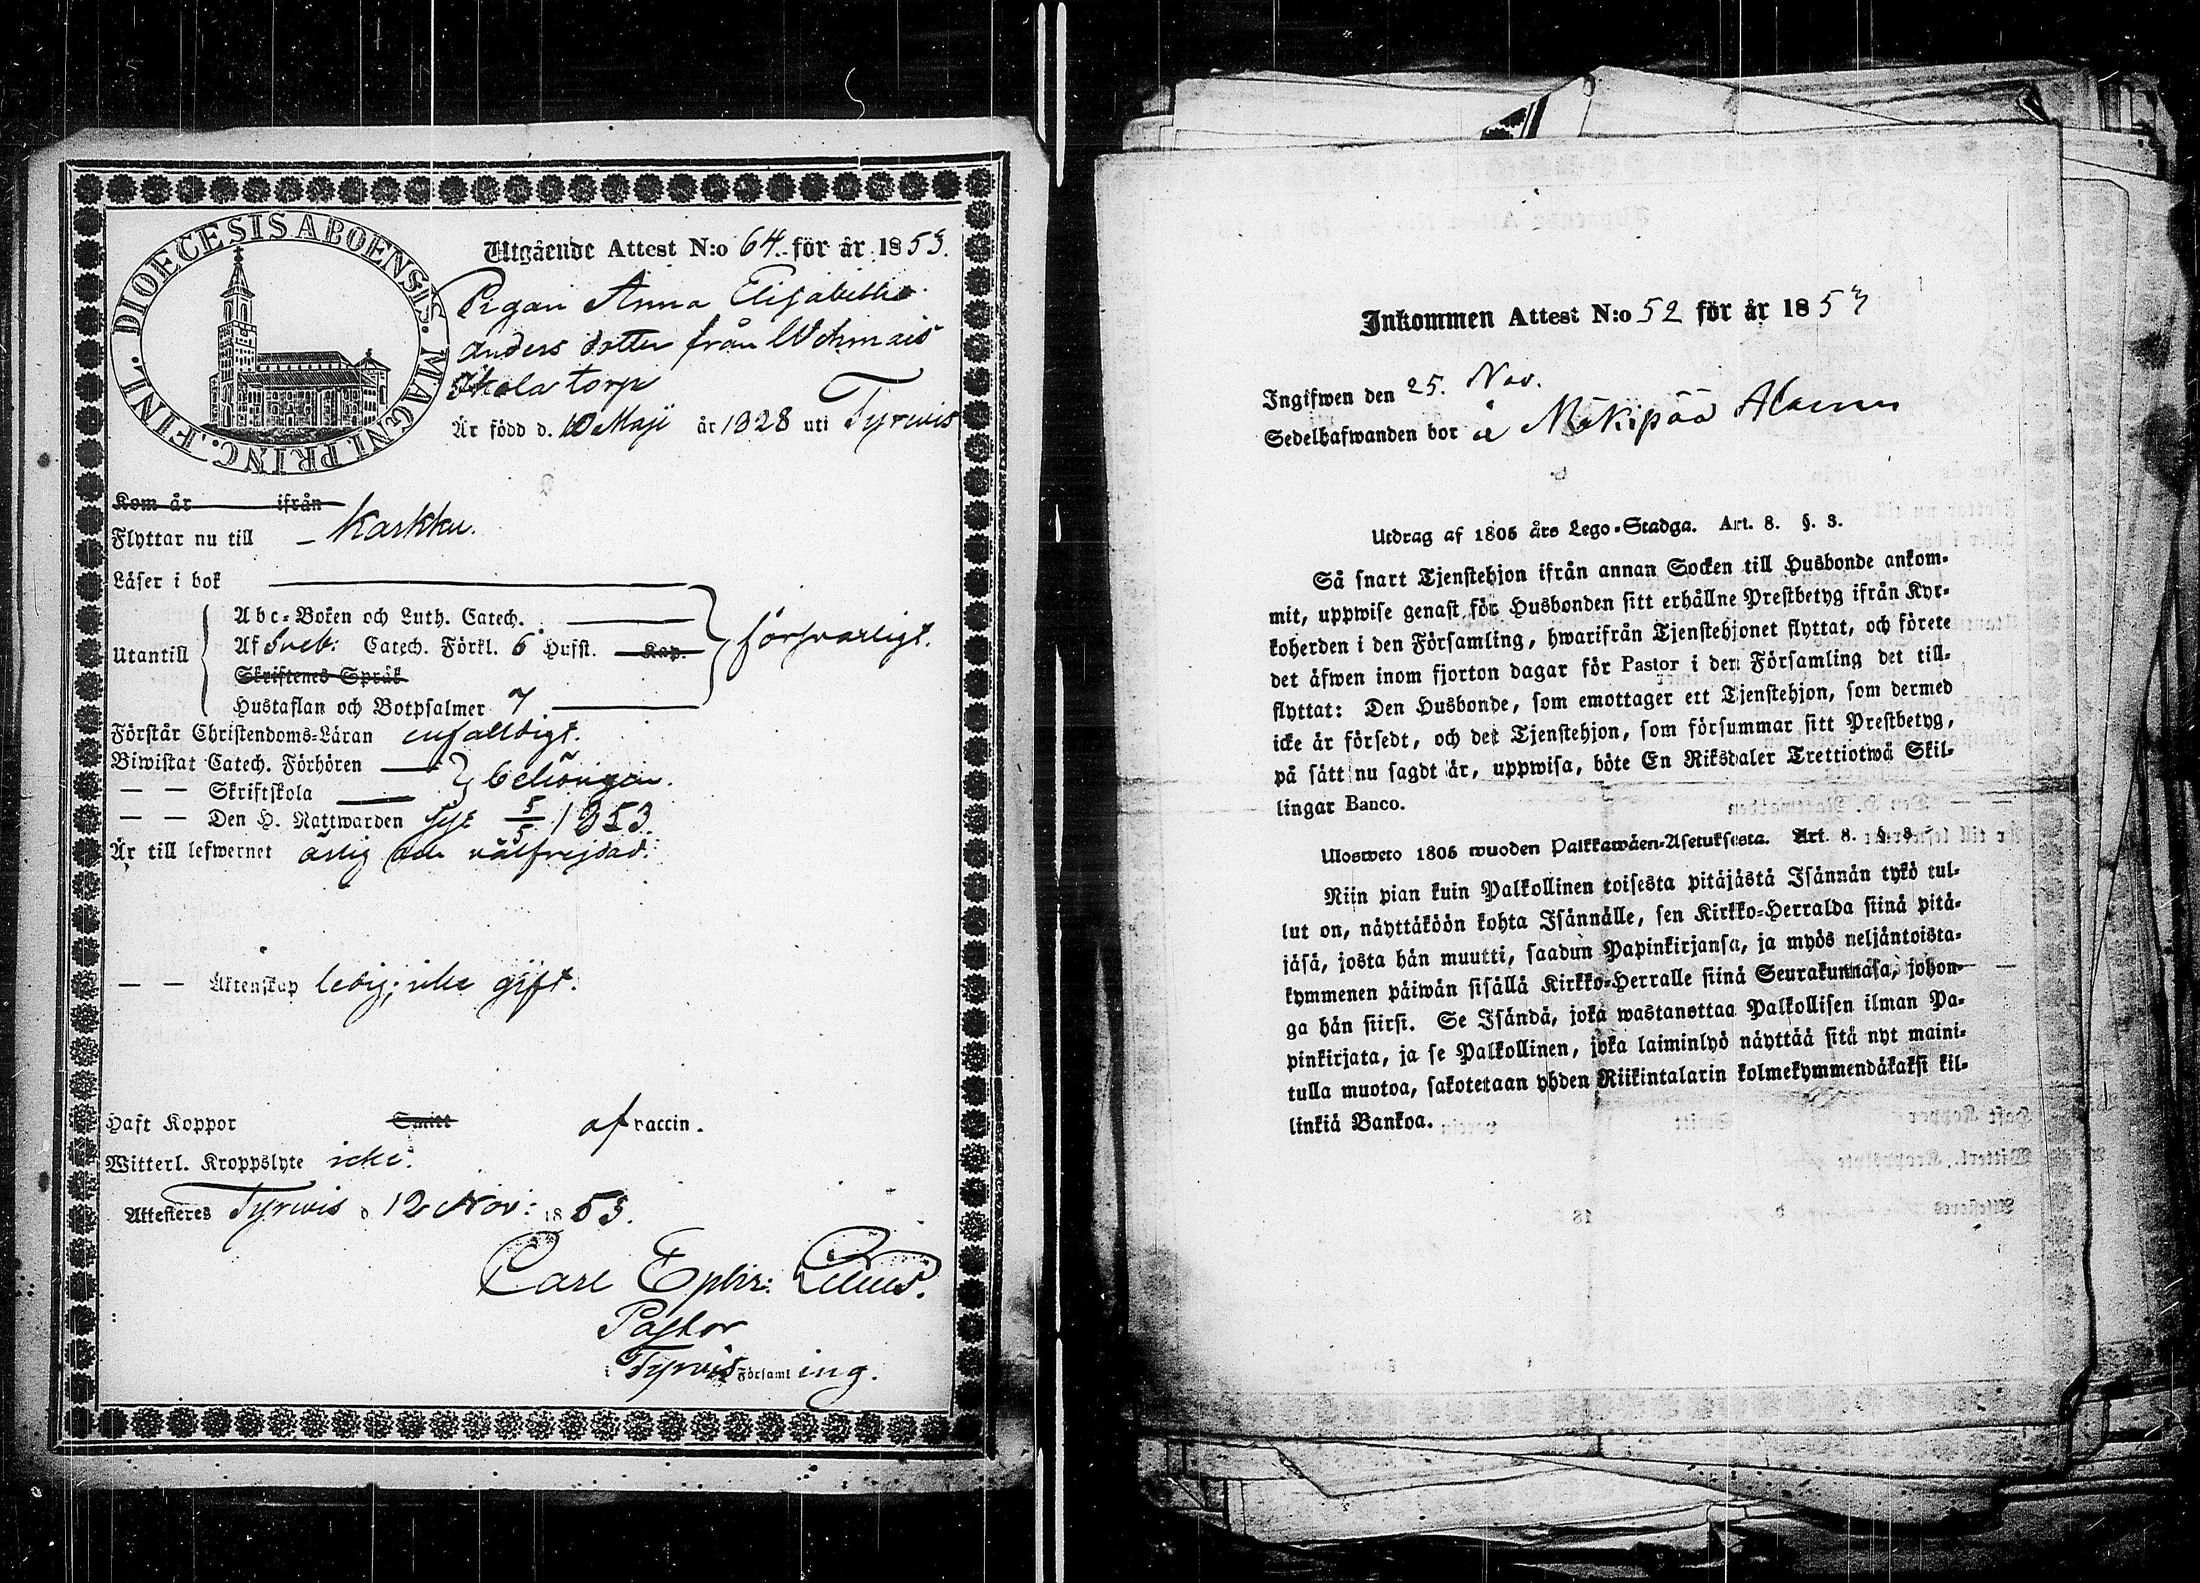 DIOECESIS ABOENSIS. MAGNI. PRINC. FINL.
Utgående Attest N:o 64. för år 1853.
Pigan Anna Elisabeth
Anders dotter från Wehmais
Skola torp
Är född d. 10 Maji år 1828 uti Tyrwis
Kom år ifrån
Flyttar nu till Karkku.
Läser i bok
Abc-Boken och Luth. Catech.
Utantill Af Sveb: Catech. Förkl. 6 Hufst. Kap. försvarligt.
Skriftenes Språk
Hustaflan och Botpsalmer 7
Förstår Christendoms-Läran enfalldigt.
Biwistat Catech. Förhören
— — Skriftskola behörigen.
— — Den H. Nattwarden sist 5/5 1853.
Är till lefwernet ärlig och välfrejdad.
— — Äktenskap ledig; icke gift.
Haft Koppor Smitt af vaccin.
Witterl. Kroppslyte icke.
Attesteres Tyrwis d 12 Nov: 1853.
Carl Ephr:
Pastor
i Tyrvis Församling.
Inkommen Attest N:o 52 för år 1853
Ingifwen den 25. Nov.
Sedelhafwanden bor å Mäkipää
Utdrag af 1805 års Lego-Stadga. Art. 8. §. 3.
Så snart Tjenstehjon ifrån annan Socken till Husbonde ankom-
mit, uppwise genast för Husbonden sitt erhållne Prestbetyg ifrån Kyr-
koherden i den Församling, hwarifrån Tjenstehjonet flyttat, och förete
det äfwen inom fjorton dagar för Pastor i den Församling det till-
flyttat: Den Husbonde, som emottager ett Tjenstehjon, som dermed
icke är försedt, och det Tjenstehjon, som försummar sitt Prestbetyg,
på sätt nu sagdt är, uppwisa, böte En Riksdaler Trettiotwå Skil-
lingar Banco.
Ulosweto 1805 wuoden Palkkawäen-Asetuksesta. Art. 8. §. 3.
Niin pian kuin Palkollinen toisesta pitäjästä Isännän tykö tul-
lut on, näyttäköön kohta Isännälle, sen Kirkko-Herralda siinä pitä-
jäsä, josta hän muutti, saadun Papinkirjansa, ja myös neljäntoista-
kymmenen päiwän sisällä Kirkko-Herralle siinä Seurakunnasa, johon-
ga hän siirsi. Se Isändä, joka wastanottaa Palkollisen ilman Pa-
pinkirjata, ja se Palkollinen, joka laiminlyö näyttää sitä nyt maini-
tulla muotoa, sakotetaan yhden Riikintalarin kolmekymmendäkaksi kil-
linkiä Bankoa.